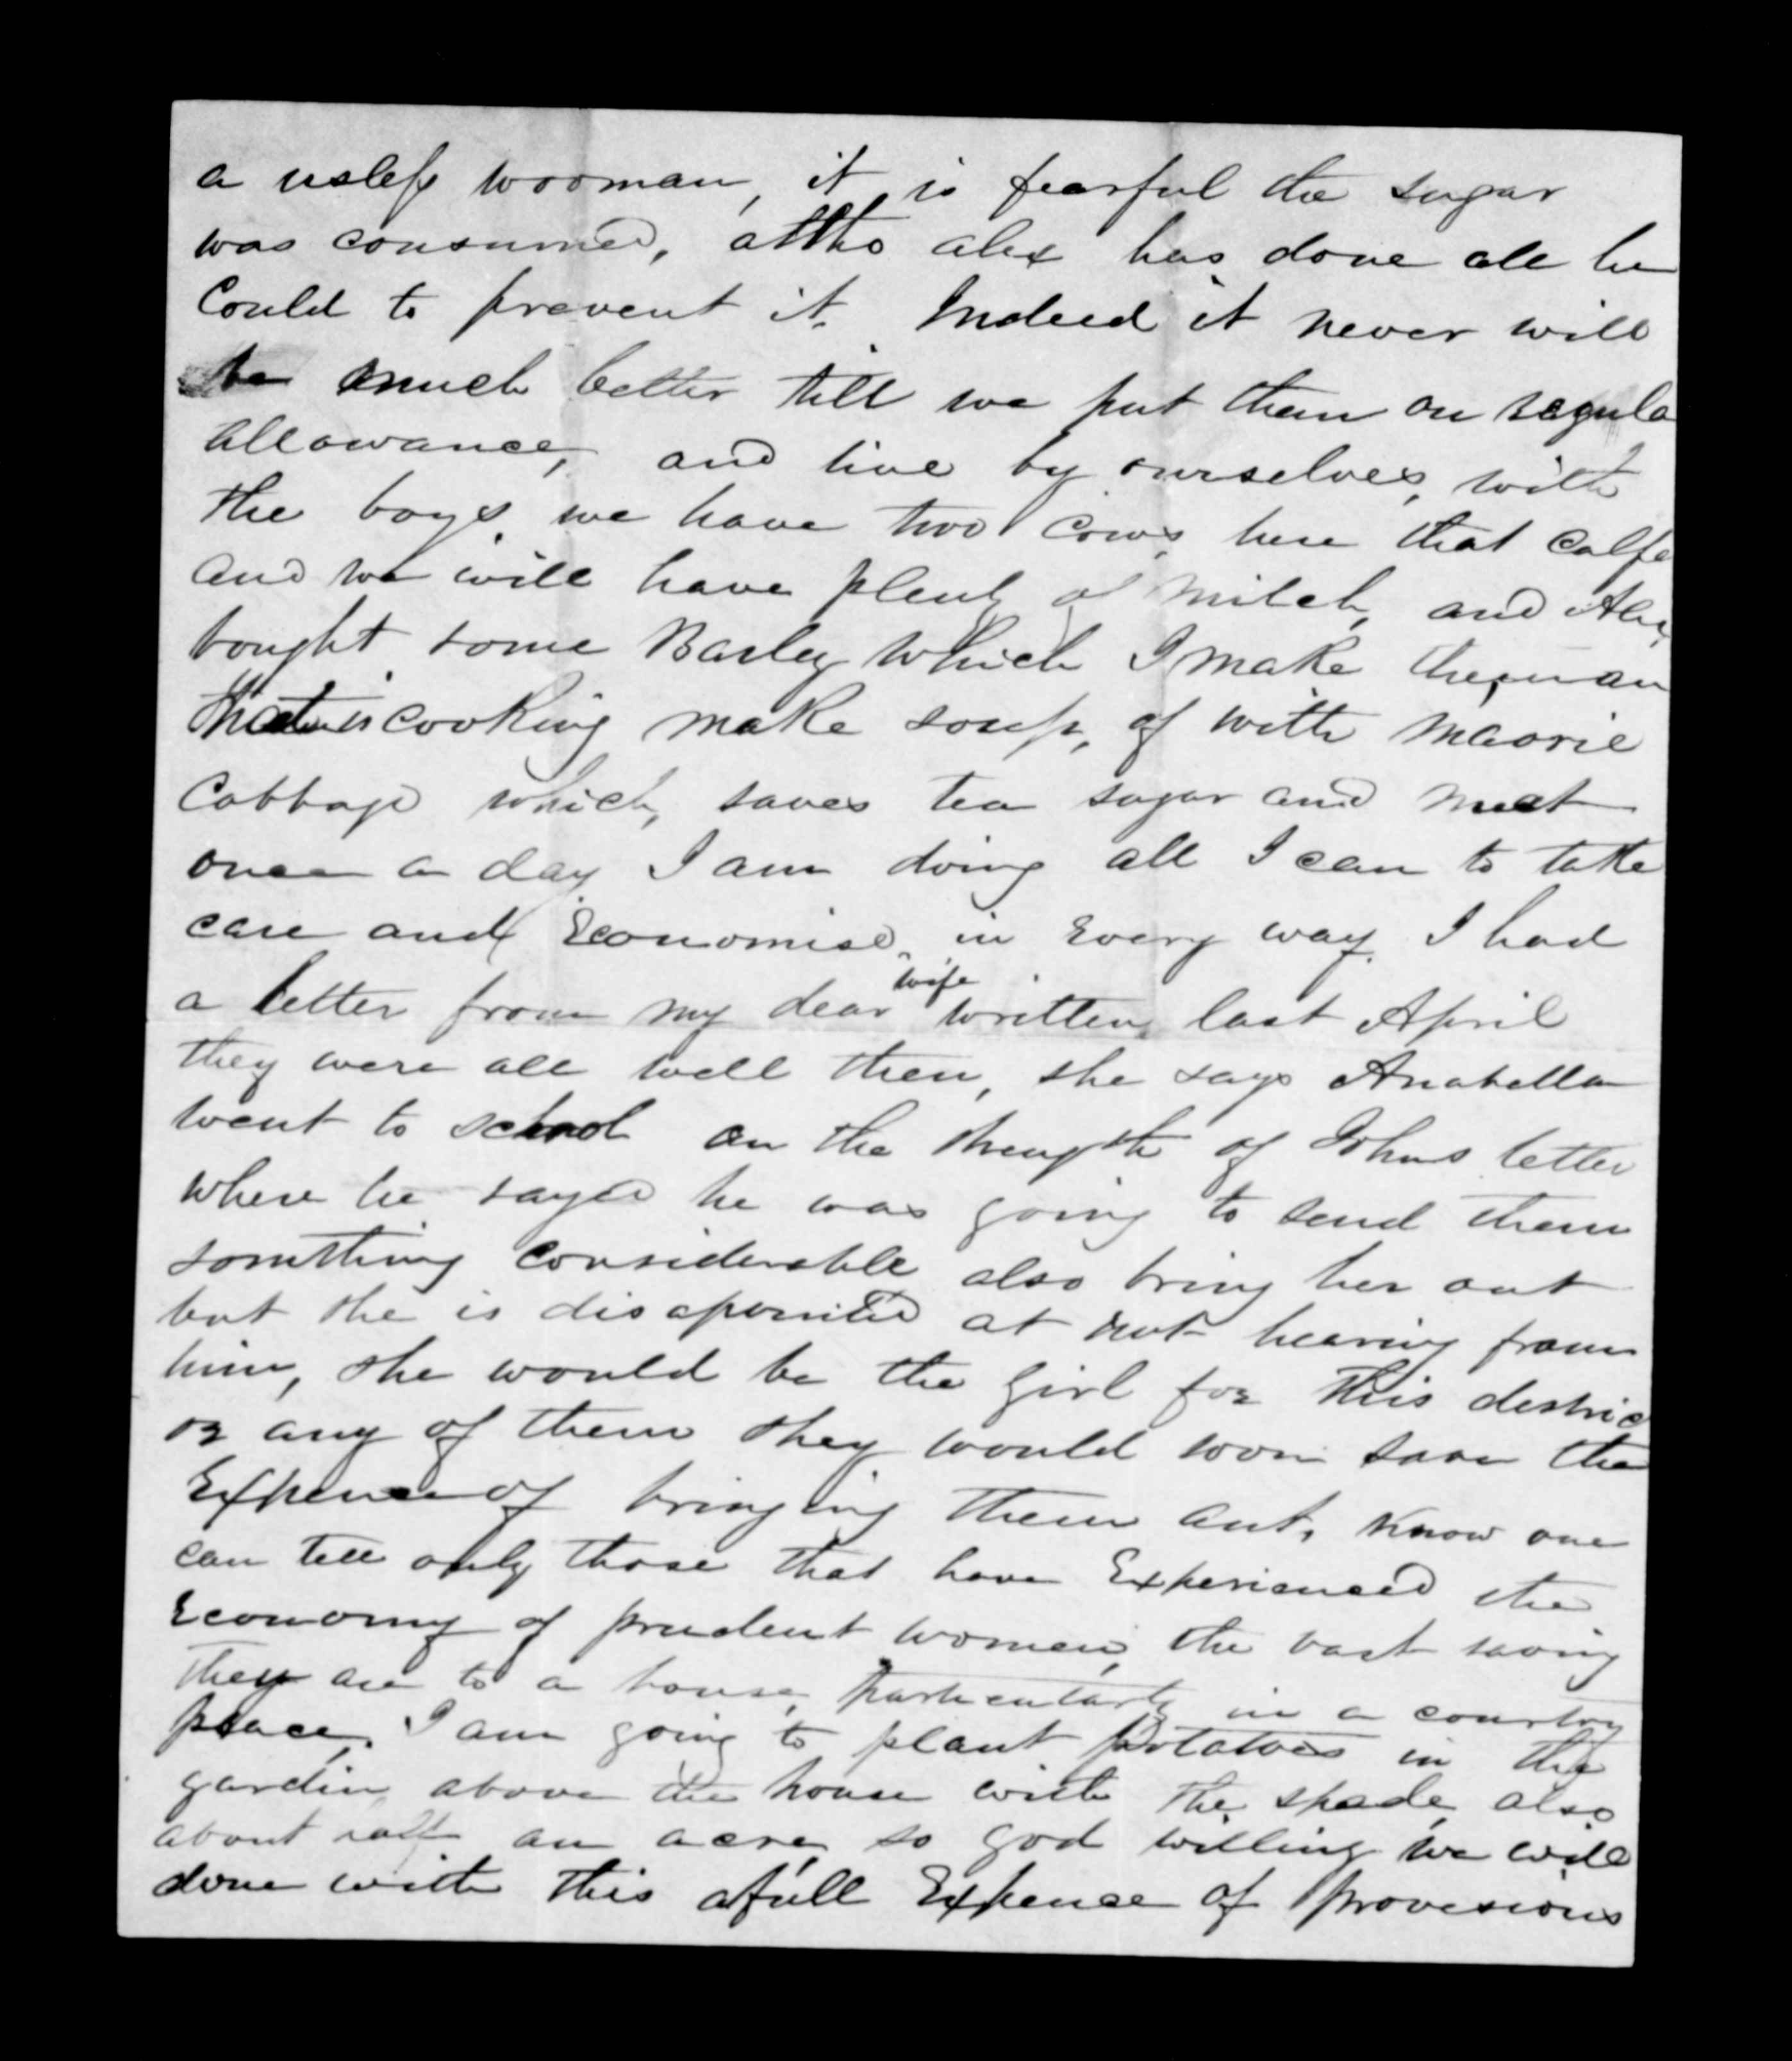 a usless wooman, it is fearful the sugar
was consumed, altho alex has done all he
Could to prevent it. Indeed it never will
be much better till we put them on regula
allowance, and live by ourselves, with
the boys, we have two cows here that calfe
and we will have plenty of milch, and Alex
bought some Barley which I make the man
that is cooking make soup, of with maorie
Cabbage which, saves tea sugar and meat
once a day I am doing all I can to take
care and Economise, in Every way. I had
a letter from my dear wife written last April
they were all well then, she says Anabella
went to school on the strength of Johns letter
where he sayed he was going to send them
somthing considerable also bring her out
but she is disapointed at not hearing from
him, she would be the girl for this destric
or any of them they would soon save the
Expence of bringing them out, know one
can tell only those that have Experienced the
Economy of prudent women, the vast saving
they are to a house, particularly in a country
place. I am going to plant potatoes in the
gardin above the house with the spade, also
about half an acre, so god willing we will
done with this afull Expence of provesions